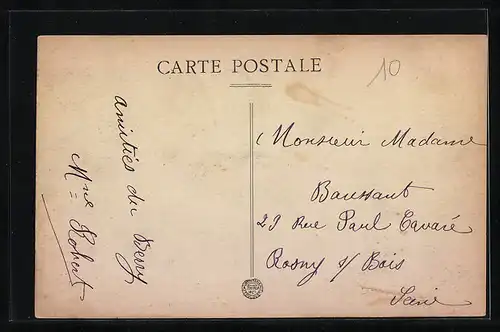 CARTE POSTALE
10
amitiés du Berry
Mme Robert
Monsieur Madame
Baussant
29 Rue Paul Cavaré
Rosny s/ Bois
Seine